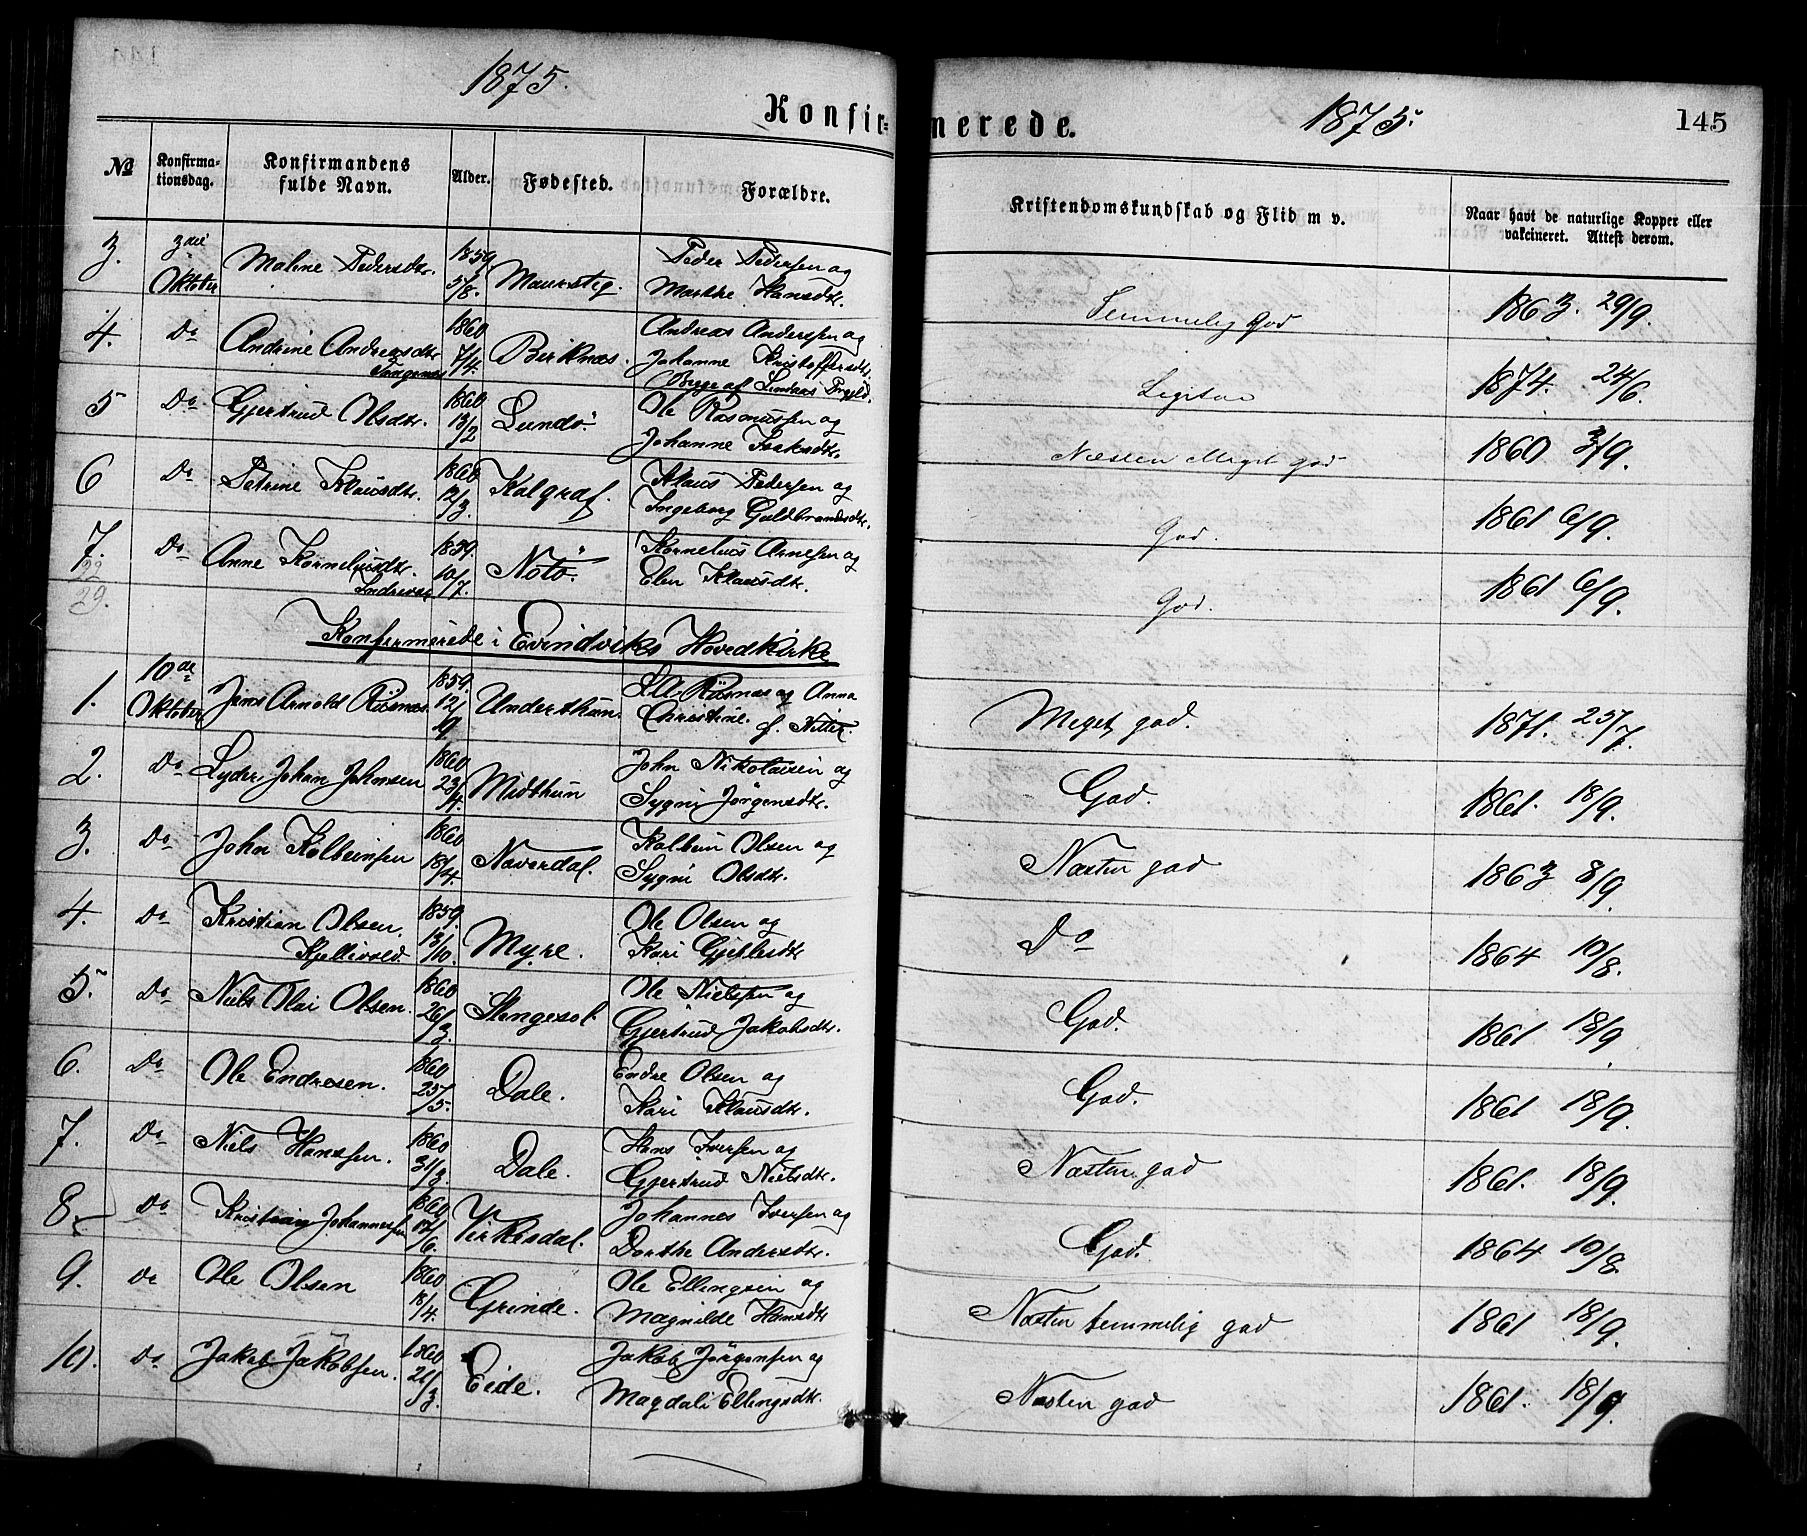 1875.
Konfirmerede.
1875.
145
No
Konfirmationsdag.
Konfirmandens fulde Navn.
Alder.
Fødested.
Forældre.
Kristendomskundskab og Flid m v.
Naar havt de naturlige Kopper eller vakcineret. Attest derom.
3. 3die Oktober Maline Pedersdtr. 1859 5/8. Maurstig. Peder Pedersen og Marthe Hansdtr. Temmelig god 1863. 29/9.
4. Do Andrine Andreasdtr. 1860 7/4. Birknæs. Andreas Andersen og Johanne Kristoffersdtr. Begge af Lindaas Prgjld. 1874. 24/6.
5 Do Gjertrud Olsdtr. 1860 13/2 Lundø. Ole Rasmussen og Johanne Isaksdtr. Næsten Meget god 1860 3/9.
6 Do Petrine Klausdtr. 1860 12/3. Kalgraf. Klaus Pedersen og Ingeborg Guldbrandsdtr. God. 1861 6/9.
7. Do Anne Korneliusdtr. 1859. 10/7. Notø. Kornelius Arnesen og Elen Klausdtr. God. 1861 6/9.
22
29.
Konfirmerede i Evindviks Hovedkirke
1. 10de Oktober Jens Arnold Risnæs 1859. 12/9 Underthun. Risnæs og Anna Christine f. Nitter. Meget god. 1871. 25/7.
2. Do Lyder Johan Johnsen 1860 23/4. Midthun John Nikolaisen og Sygni Jørgensdtr. God. 1861. 18/9.
3. Do John Kolbeinsen 1860 18/4. Naverdal. Kolbein Olsen og Sygni Olsdtr. Næsten god 1863 8/9.
4 Do Kristian Olsen. Kjellevold 1859. 13/10. Myre. Ole Olsen og Kari Gjertesdtr Do 1864 10/8.
5. Do Niels Olai Olsen. 1860 26/3. Stengesol. Ole Nielssen og Gjertrud Jakobsdtr. God. 1861 18/9
6. Do Ole Endresen. 1860 25/5. Dale. Endre Olsen og Kari Klausdtr. God. 1861 18/9.
7. Do Niels Hanssen. 1860 31/3. Dale. Hans Iversen og Gjertrud Nielsdtr. Næsten god 1861. 18/9.
8. Do Kristian Johannessen 1860 17/6. Virkesdal. Johannes Iversen og Dorthe Andersdtr. God. 1864 10/8.
9. Do Ole Olsen 1860 18/4. Grinde. Ole Ellingsen og Magnilde Hansdtr Næsten temmelig god 1861 18/9.
10. Do Jakob Jakobsen. 1860 21/3. Eide. Jakob Jørgensen og Magdali Ellingsdtr. Næsten god 1861. 18/9.